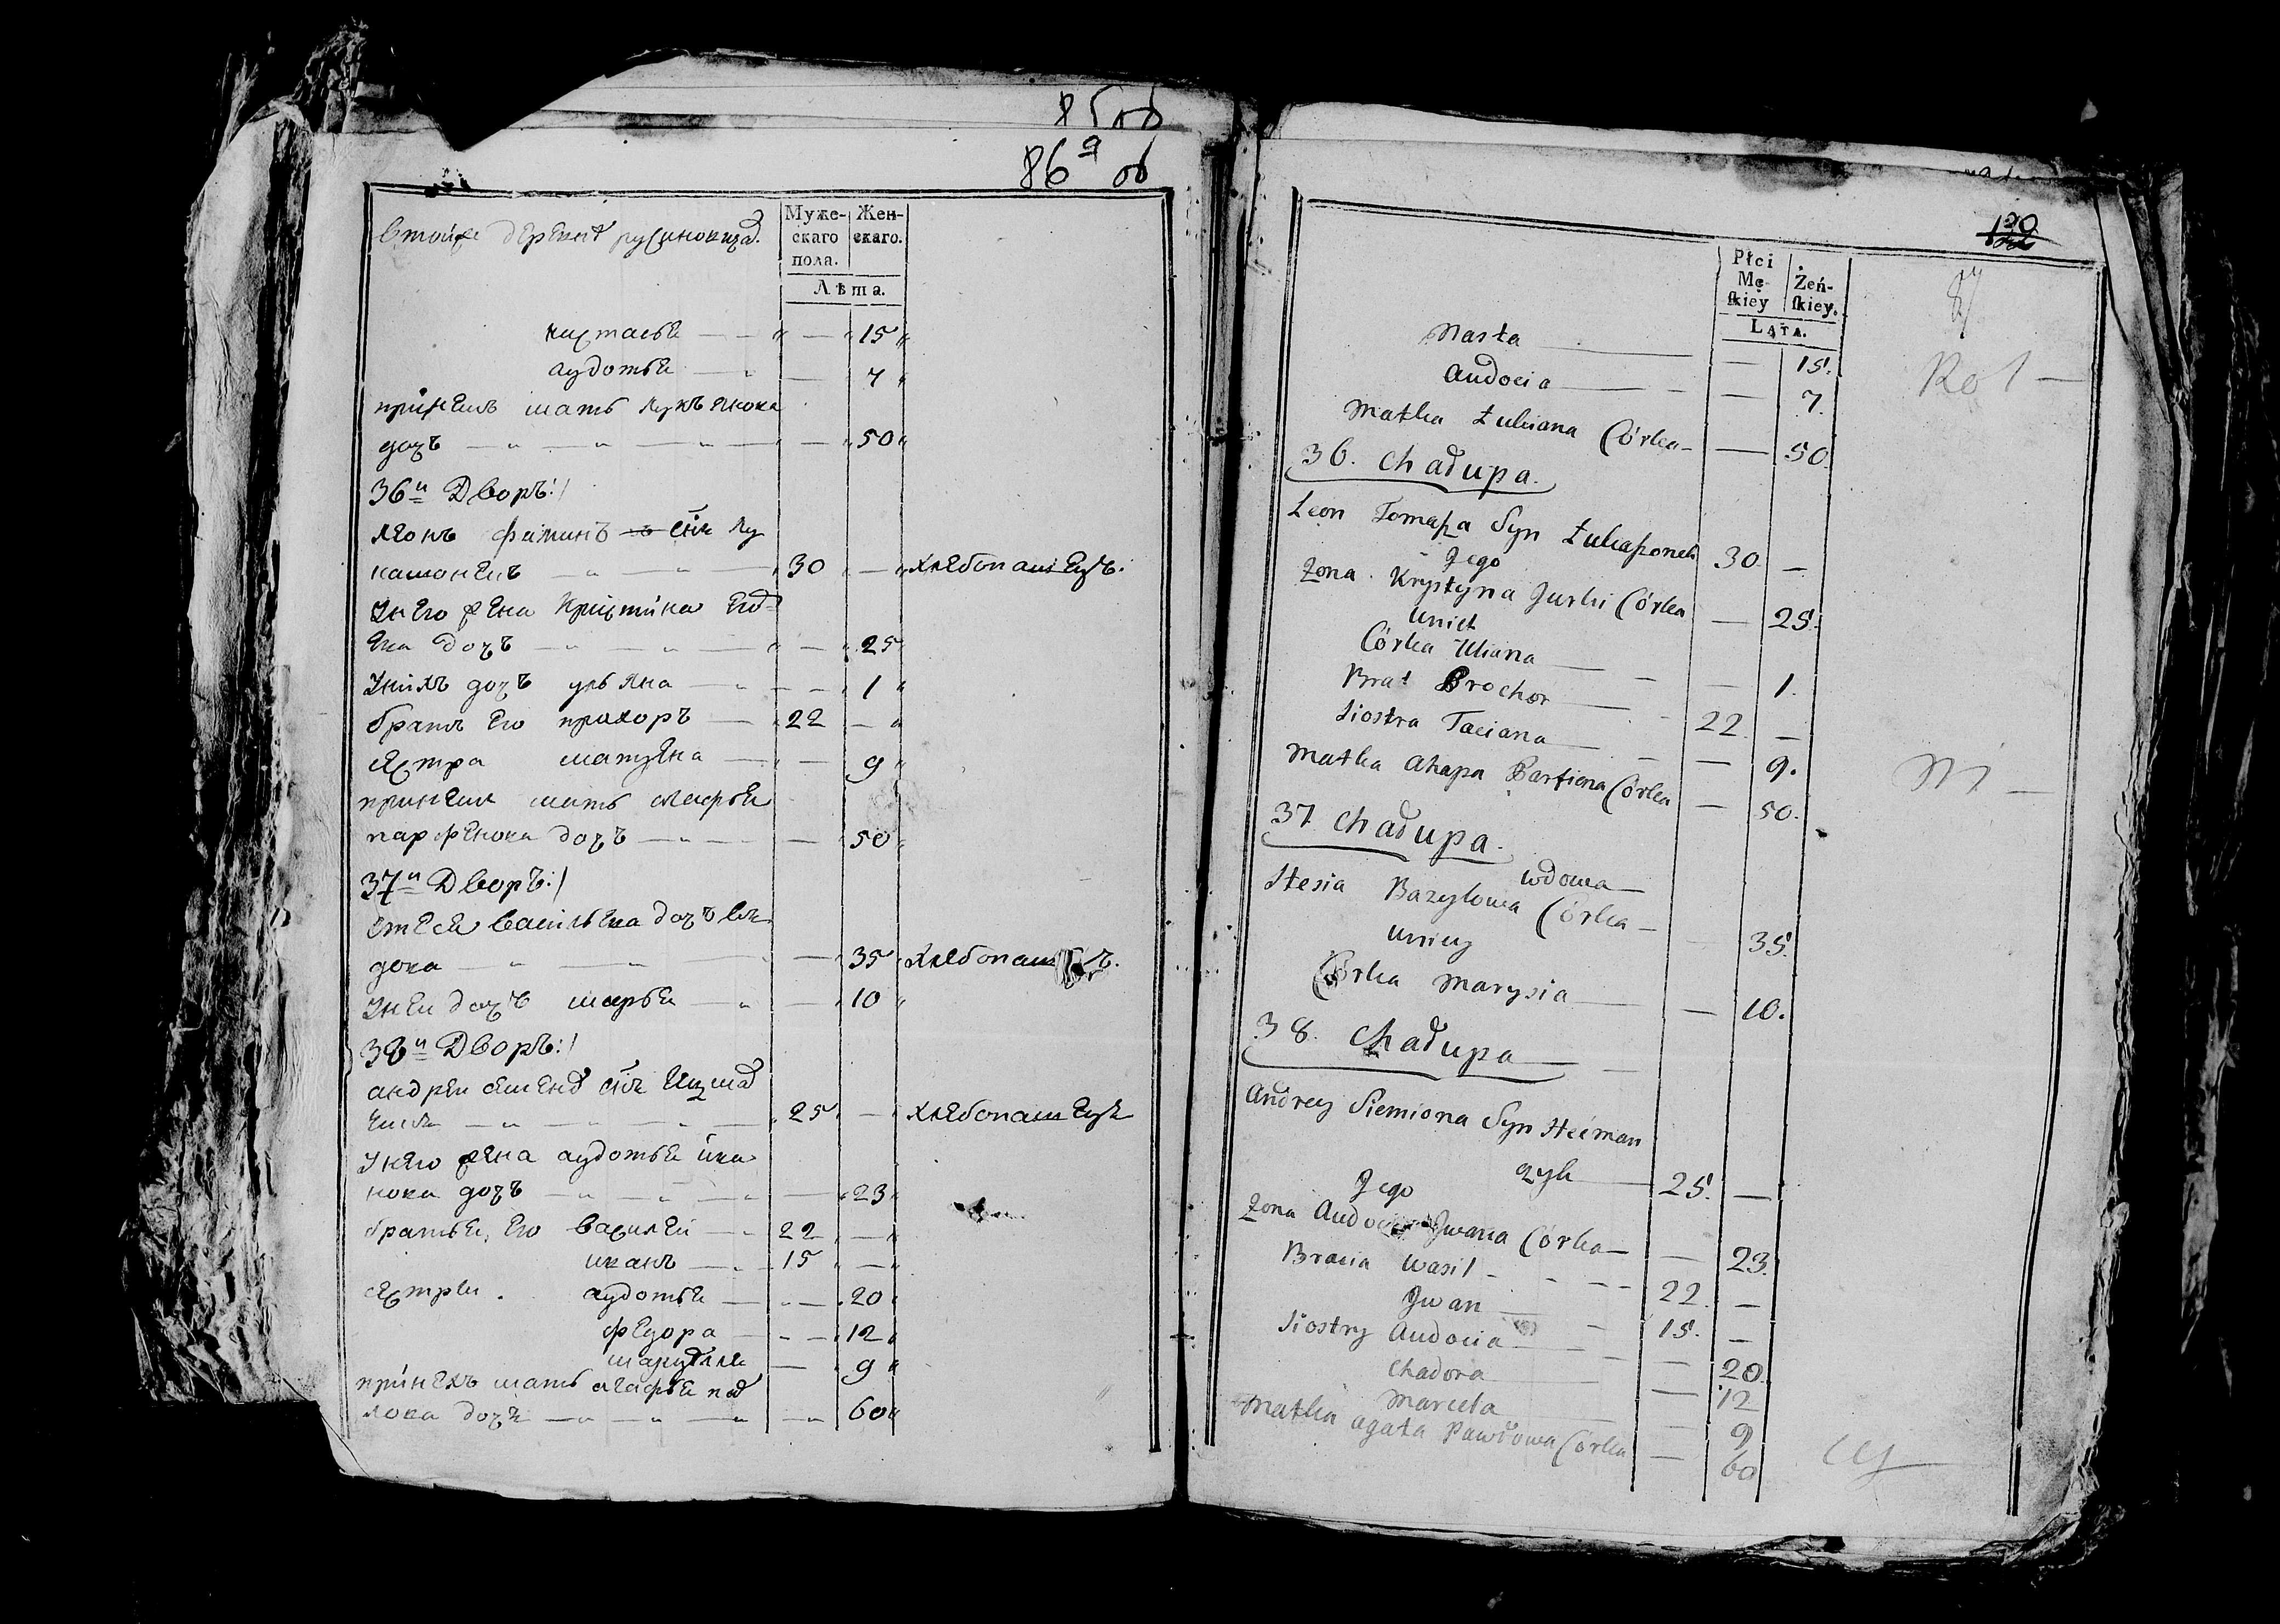 85 об
86 а об
втойже деревне русиновичах.
Муже-
скаго
пола.
Жен-
скаго.
Лѣта.
настасья — 15
аудотья — 7
принемъ мать лукъянова
дочъ — 50
36й Дворъ:/
леонъ фаминъ снъ лу
кашонекъ — 30 — хлебопашецъ.
Унего жена Кристина
дочъ — 25
Унихъ дочъ ульяна — 1
братъ его прахоръ — 22
сестра татяна — 9
принем мать агафья
парфенова дочъ — 50
37й Дворъ:/
стеся васильева дочъ вы
дова — 35 хлебопаш
Уней дочъ марья — 10
38й Дворъ:/
андрей семенов снъ
25 — хлебопашецъ
Унего жена аудотья ива
нова дочъ — 23
братья его василей — 22
иванъ — 15
сестры. аудотья — 20
федора — 12
9
принемъ мать агафья пав
лова дочъ — 60
120
87
Płci
Mę-
skiey
Żeń-
skiey.
LATA.
Nasta — 15.
Audocia — 7.
Matka Łukiana Córka — 50.
36. Chałupa.
Leon Tomasza Syn Łukaszonek 30 —
Jego
Żona Krystyna Jurki Córka — 25.
Unich
Córka Uliana — 1.
Brat Prochor — 22 —
Siostra Taciana — 9.
Matka Ahapa Parfiona Córka — 50.
37 Chałupa.
wdowa
Stesia Bazylowa Córka — 35.
Uniey
Córka Marysia — 10.
38. Chałupa
Andrey Siemiona Syn Heiman
czyk — 25. —
Jego
Żona Audocia Jwana Córka — 23.
Bracia Wasil — 22 —
Jwan — 15. —
Siostry Audocia — 20.
Chadora — 12
Marcela — 9
Matka Agata Pawłowa Córka — 60